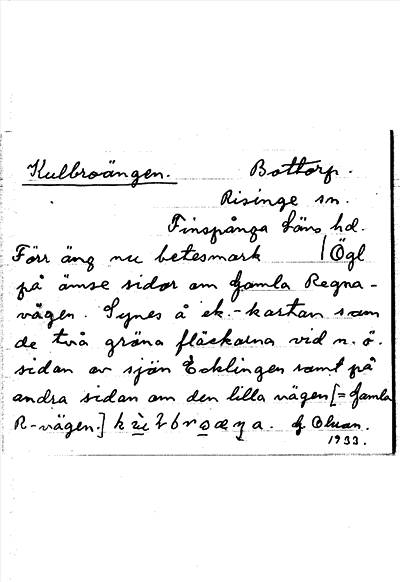 Kulbroängen. Bottorp.
Risinge sn.
Finspånga läns hd.
Förr äng nu betesmark / Ögl
på ömse sidor om Gamla Regna-
vägen. Synes å ek.-kartan som
de två gröna fläckarna vid n.ö.
sidan av sjön Ecklingen samt på
andra sidan om den lilla vägen [= Gamla
R-vägen.]
1933.